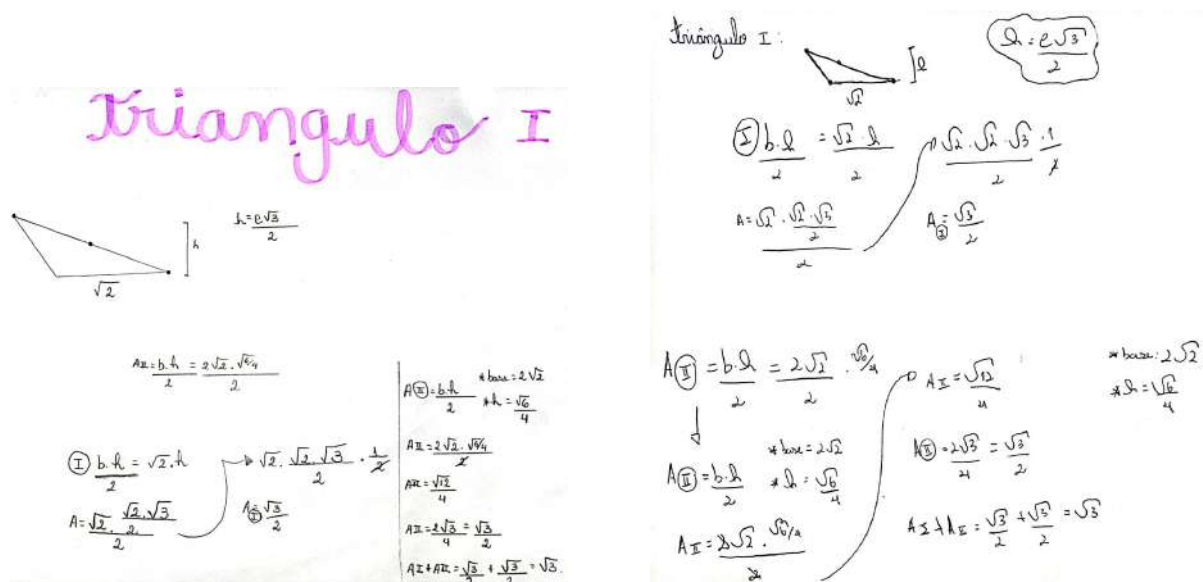 triangulo I
h = e√3/2
h
√2
AII = b.h/2 = 2√2 . √6/4 / 2
I b.h/2 = √2 . h
√2 . √2 . √3/2 . 1/2
A = √2 . √2 . √3/2 / 2
A I = √3/2
A II = b.h/2
* base = 2√2
* h = √6/4
AII = 2√2 . √6/4 / 2
AII = √12/4
AII = 2√3/4 = √3/2
AI + AII = √3/2 + √3/2 = √3.
triângulo I:
√2
h = e√3/2
I b.h/2 = √2 . h/2
√2 . √2 . √3/2 . 1/2
A = √2 . √2 . √3/2 / 2
A I = √3/2
A II = b.h/2 = 2√2/2 . √6/4
A II = b.h/2
* base = 2√2
* h = √6/4
A II = √12/4
* base: 2√2
* h = √6/4
A II = 2√3/4 = √3/2
A I + A II = √3/2 + √3/2 = √3